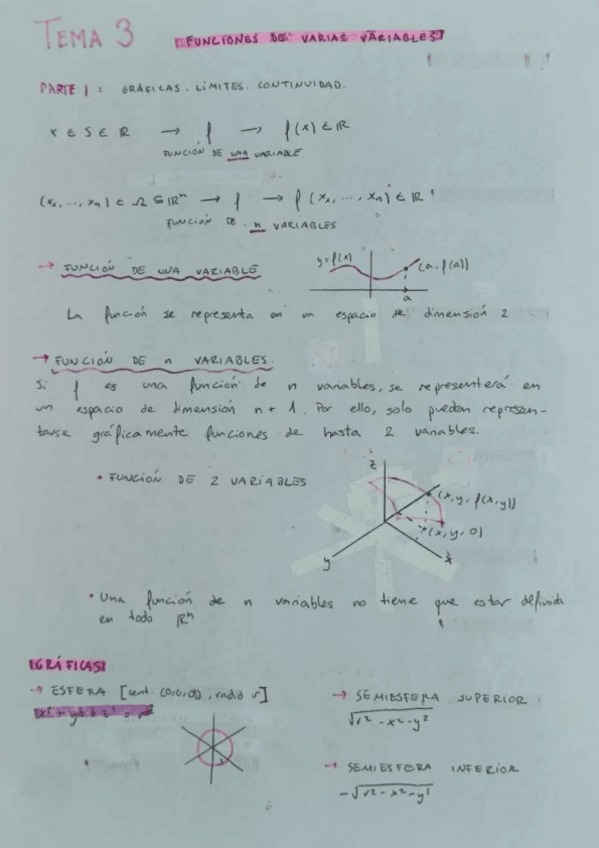 TEMA 3
FUNCIONES DE VARIAS VARIABLES
PARTE 1: GRÁFICAS. LÍMITES. CONTINUIDAD.
x ∈ S ∈ ℝ → f → f(x) ∈ ℝ
FUNCIÓN DE UNA VARIABLE
(x₁, ..., xn) ∈ Ω ⊆ ℝⁿ → f → f(x₁, ..., xn) ∈ ℝ
FUNCIÓN DE n VARIABLES
→ FUNCIÓN DE UNA VARIABLE
y=f(x)
(a, f(a))
a
La función se representa en un espacio de dimensión 2
→ FUNCIÓN DE n VARIABLES
Si f es una función de n variables, se representerá en
un espacio de dimensión n+1. Por ello, solo pueden represen-
tarse gráficamente funciones de hasta 2 variables.
• FUNCIÓN DE 2 VARIABLES
z
(x, y, f(x,y))
(x, y, 0)
y
x
• Una función de n variables no tiene que estar definida
en todo ℝⁿ
GRÁFICAS
→ ESFERA [cent. (0,0,0), radio r]
x² + y² + z² = r²
→ SEMIESFERA SUPERIOR
√r² - x² - y²
→ SEMIESFERA INFERIOR
-√r² - x² - y²